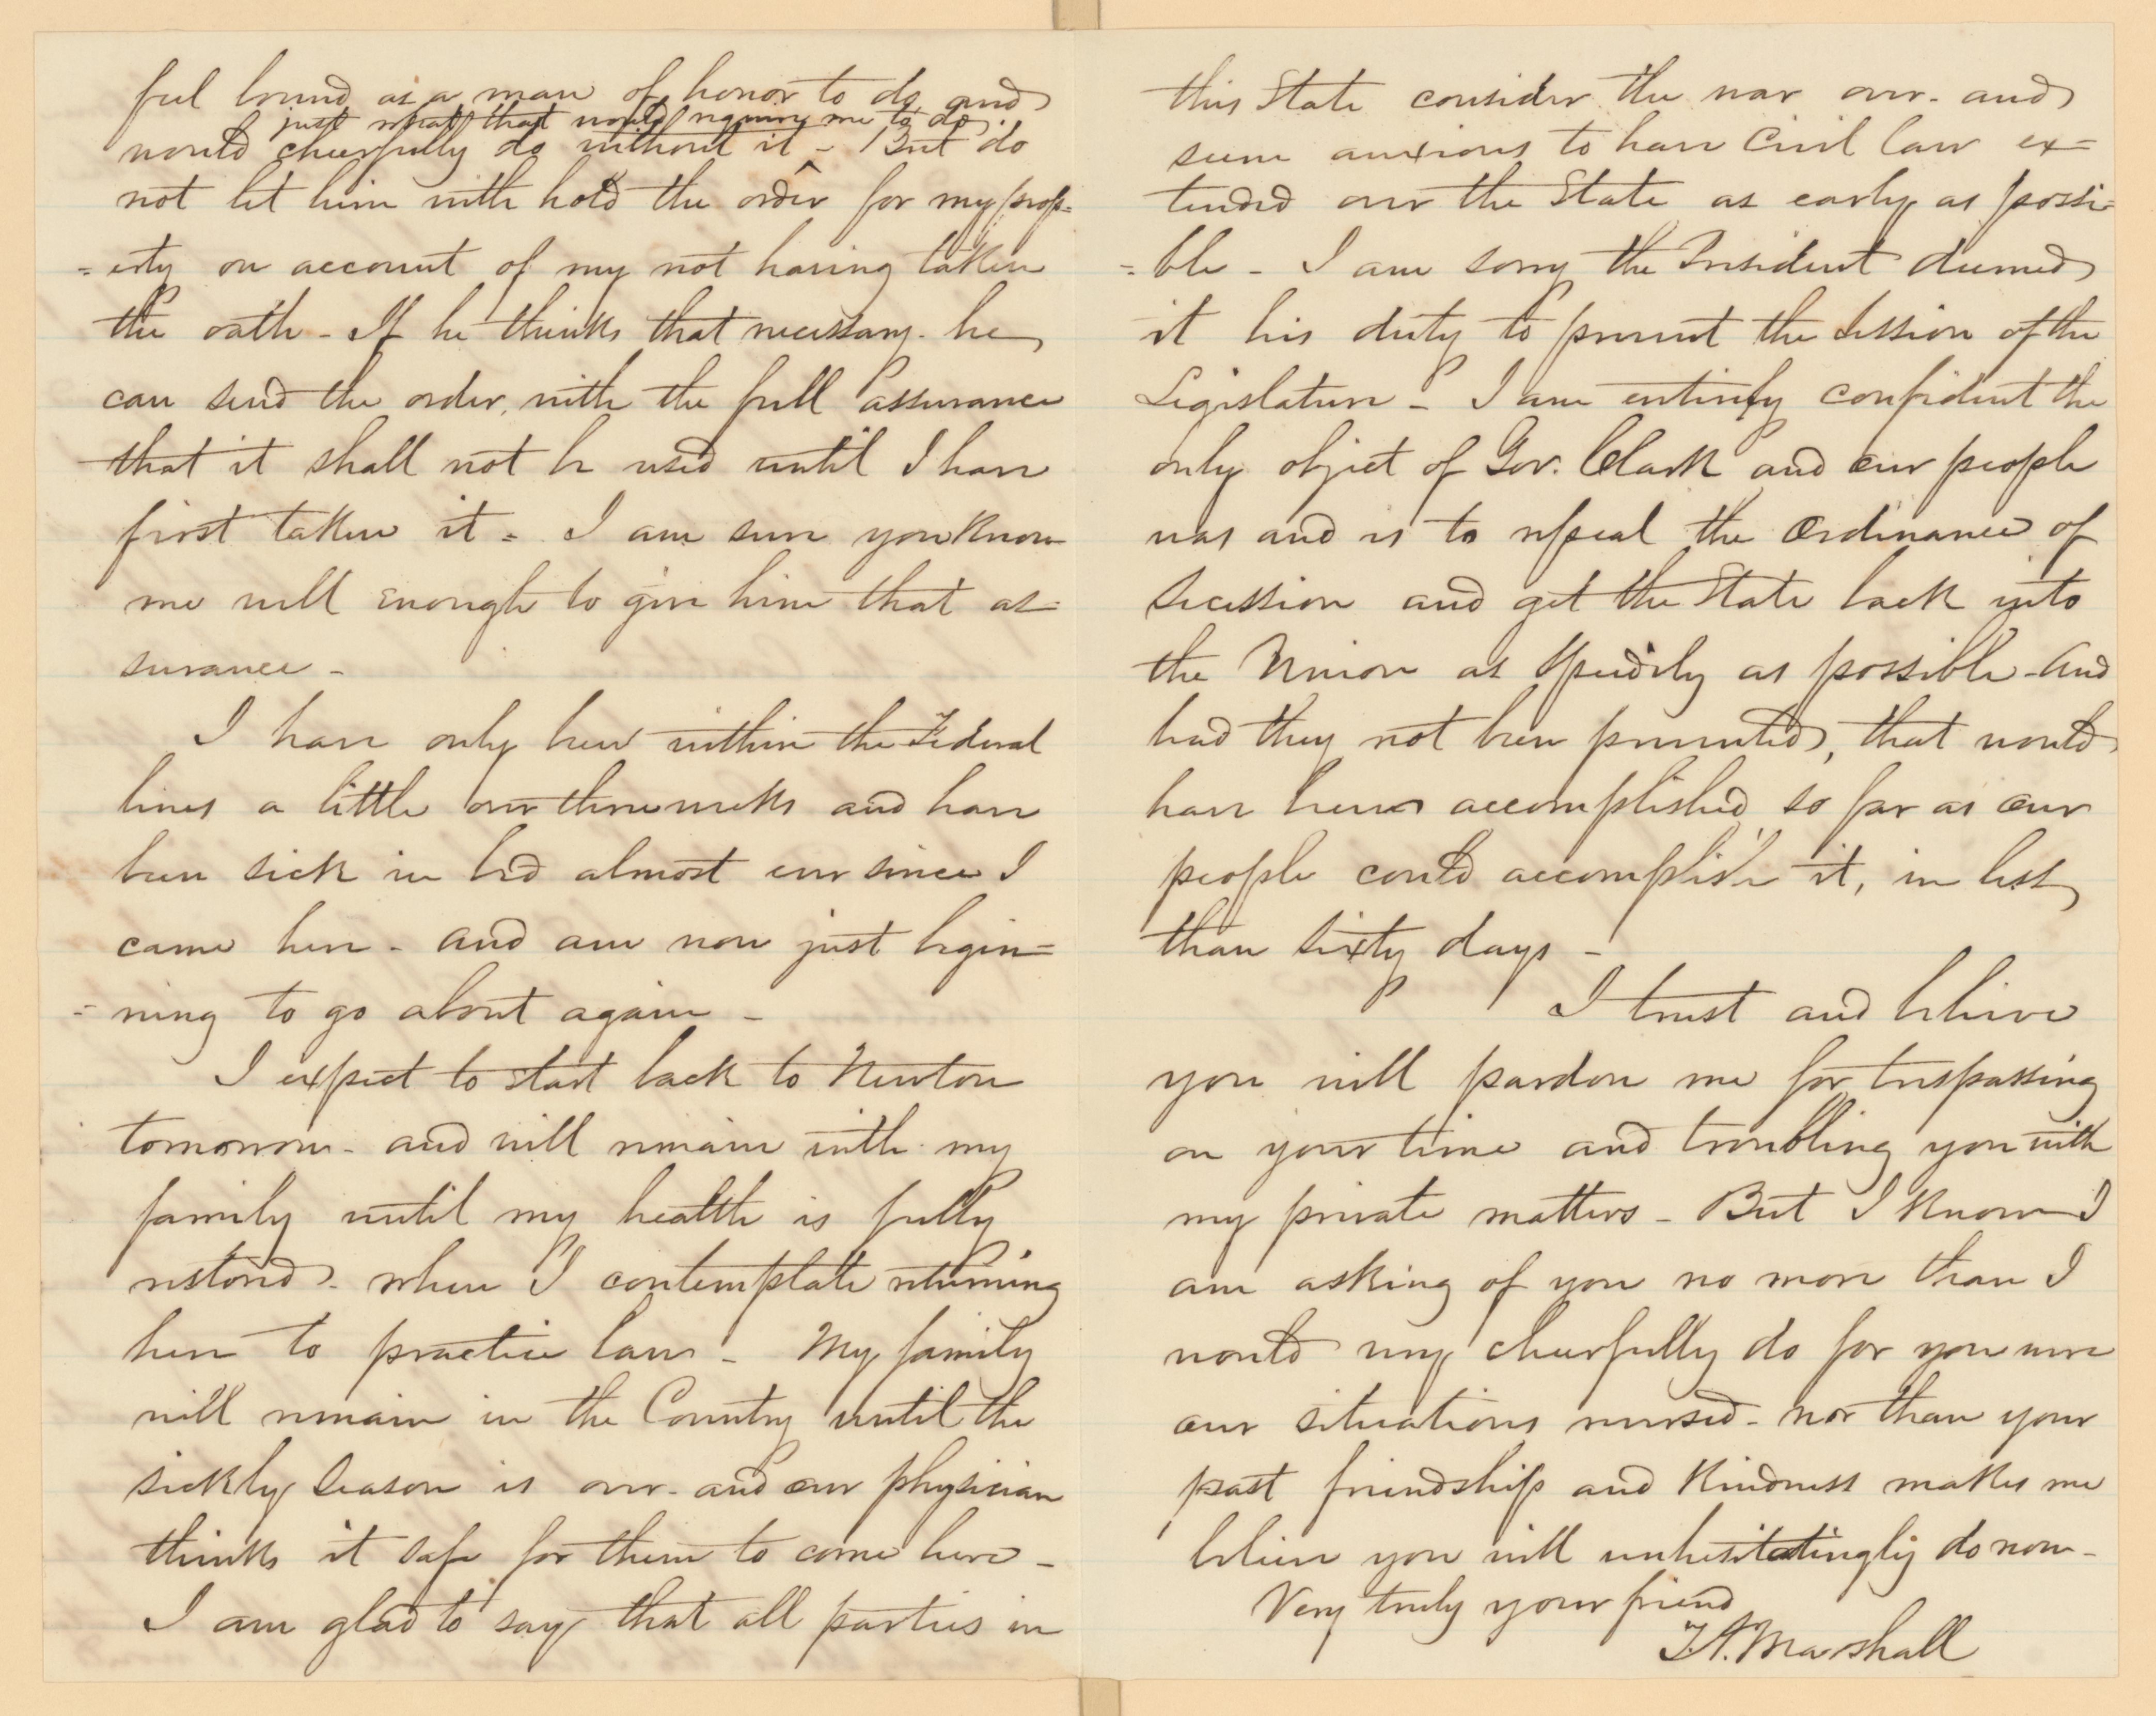 feel bound as a man of honor to do, and
just what that would require me to do.
would cheerfully do without it - But do
not let him with hold the order for my prop=
=erty on account of my not having taken
the oath - If he thinks that necessary - he
can send the order, with the full assurance
that it shall not be used until I have
first taken it - I am sure you know
me well enough to give him that as=
surance -
I have only been within the Federal
lines a little over three weeks and have
been sick in bed almost ever since I
came here - and am now just begin=
=ning to go about again -
I expect to start back to Newton
tomorrow - and will remain with my
family until my health is fully
restored - when I contemplate returning
here to practice law - My family
will remain in the Country until the
sickly season is over - and our physician
thinks it safe for them to come here -
I am glad to say that all parties in
this State consider the war over - and
seem anxious to have Civil law ex=
tended over the State as early as possi=
=ble - I am sorry the President deemed
it his duty to prevent the session of the
Legislature - I am entirely confident the
only object of Gov. Clark and our people
was and is to repeal the Ordinance of
Secession and get the State back into
the Union as speedily as possible - And
had they not been prevented, that would
have been accomplished, so far as our
people could accomplish it, in less
than sixty days -
I trust and believe
you will pardon me for trespassing
on your time and troubling you with
my private matters - But I know I
am asking of you no more than I
would very cheerfully do for you were
our situations reversed - nor than your
past friendship and kindness makes me
believe you will unhesitatingly do now -
Very truly your friend
T. A. Marshall